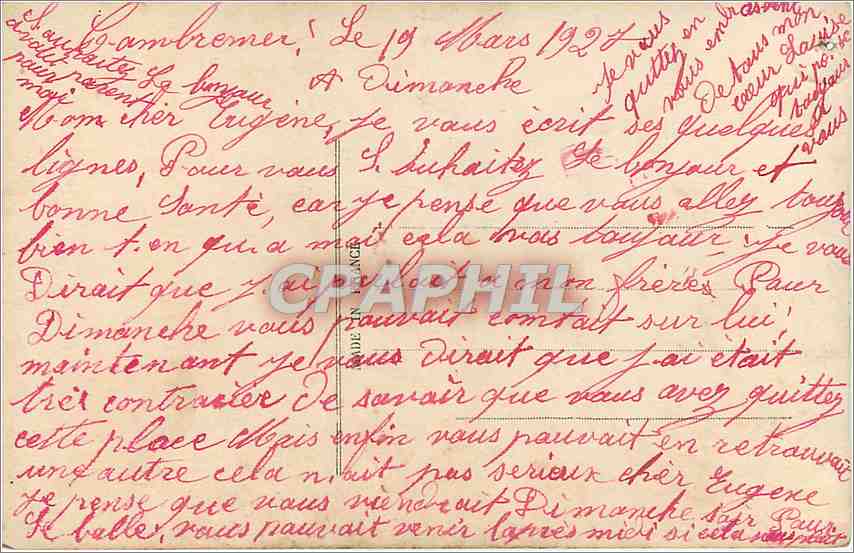 Cambremer, Le 19 Mars 1927
A Dimanche
Mom cher Eugène, je vous écrit ses quelques
lignes, Pour vous Souhaitez Le bonjour et
bonne Santé, car je pense que vous allez toujour
bien t. en qu, a moi cela vas toujour. Je vous
Dirait que j'ai parlait a mon frères Pour
Dimanche vous pouvait comtait sur lui,
maintenant je vous dirait que j'ai était
très contrarier de savoir que vous avez quittez
cette place Mais enfin vous pouvait en retrouvait
une autre cela n'ait pas serieux cher Eugene
Je pense que vous viendrait Dimanche soir Pour
Le balle, vous pouvait venir l'après midi si cela vous plait
Je vous
quittez en
vous embrassent
De tous mon
cœur Louise
qui
toujours
a vous
Souhaitez Le bonjour
a votre parent
pour
moi
MADE IN FRANCE
CPAPHIL